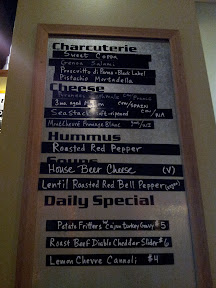 Charcuterie
Sweet Coppa
Genoa Salami
Proscuitto di Parma • Black Label
Pistachio Mortadella
Cheese
3mo. aged cow/SPAIN
Seastack soft-ripened cow/WA
Fromage Blanc
Hummus
Roasted Red Pepper
Soups
House Beer Cheese (V)
Lentil Roasted Red Bell Pepper
Daily Special
Potato Fritters w/ Cajun Turkey Gravy $5
Roast Beef Diablo Cheddar Slider $6
Lemon Chevre Cannoli $4